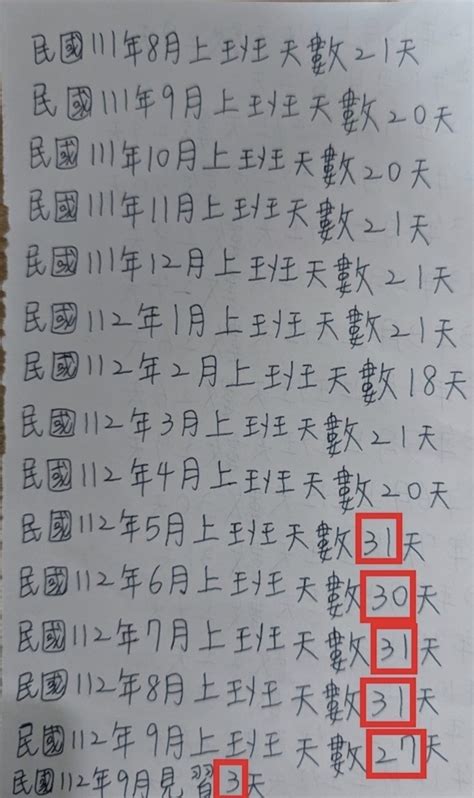 民國111年8月上班天數21天
民國111年9月上班天數20天
民國111年10月上班天數20天
民國111年11月上班天數21天
民國111年12月上班天數21天
民國112年1月上班天數21天
民國112年2月上班天數18天
民國112年3月上班天數21天
民國112年4月上班天數20天
民國112年5月上班天數31天
民國112年6月上班天數30天
民國112年7月上班天數31天
民國112年8月上班天數31天
民國112年9月上班天數27天
民國112年9月見習3天